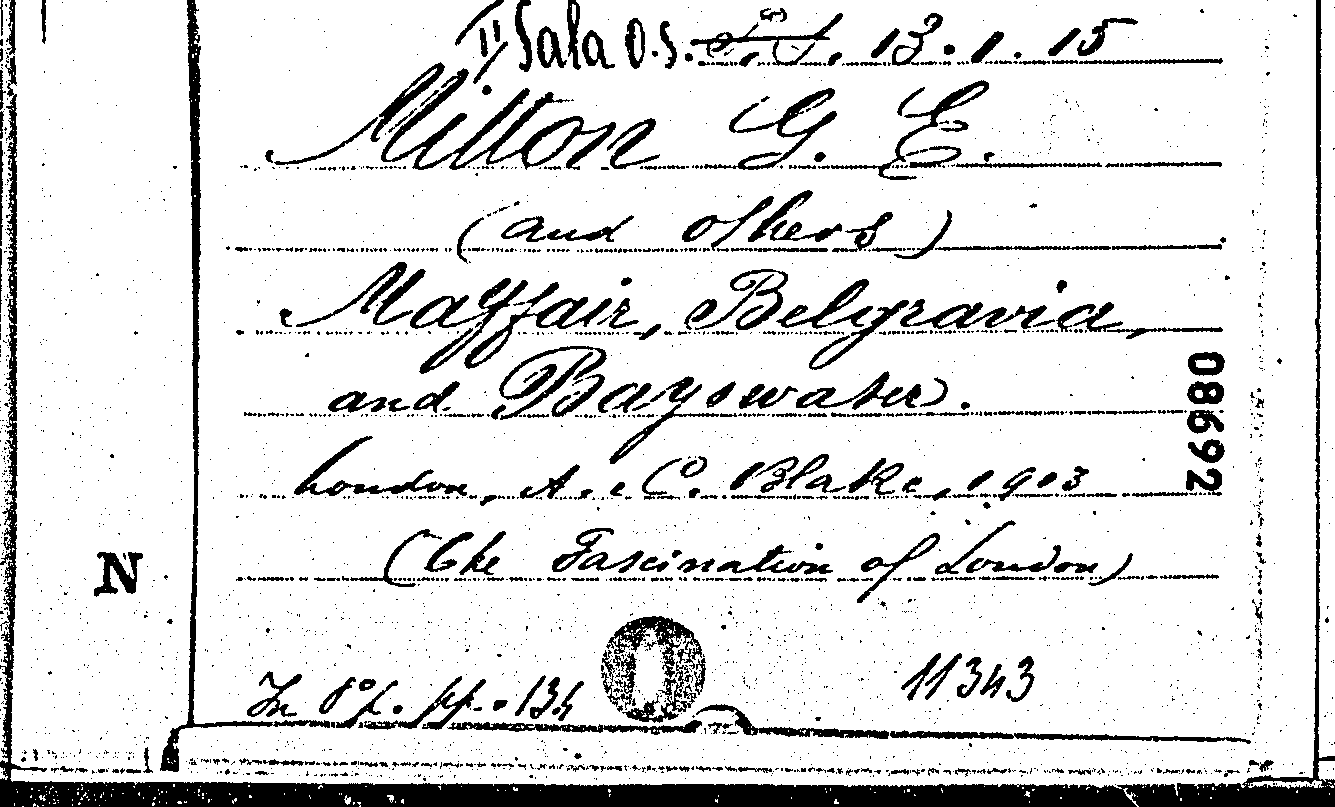 II Sala O.S. 13.1.15
Milton G. E.
(and others)
Mayfair, Belgravia,
and Bayswater.
London, A. C. Blake, 1903
08692
(The Fascination of London)
N
In 8º. pp.
11343